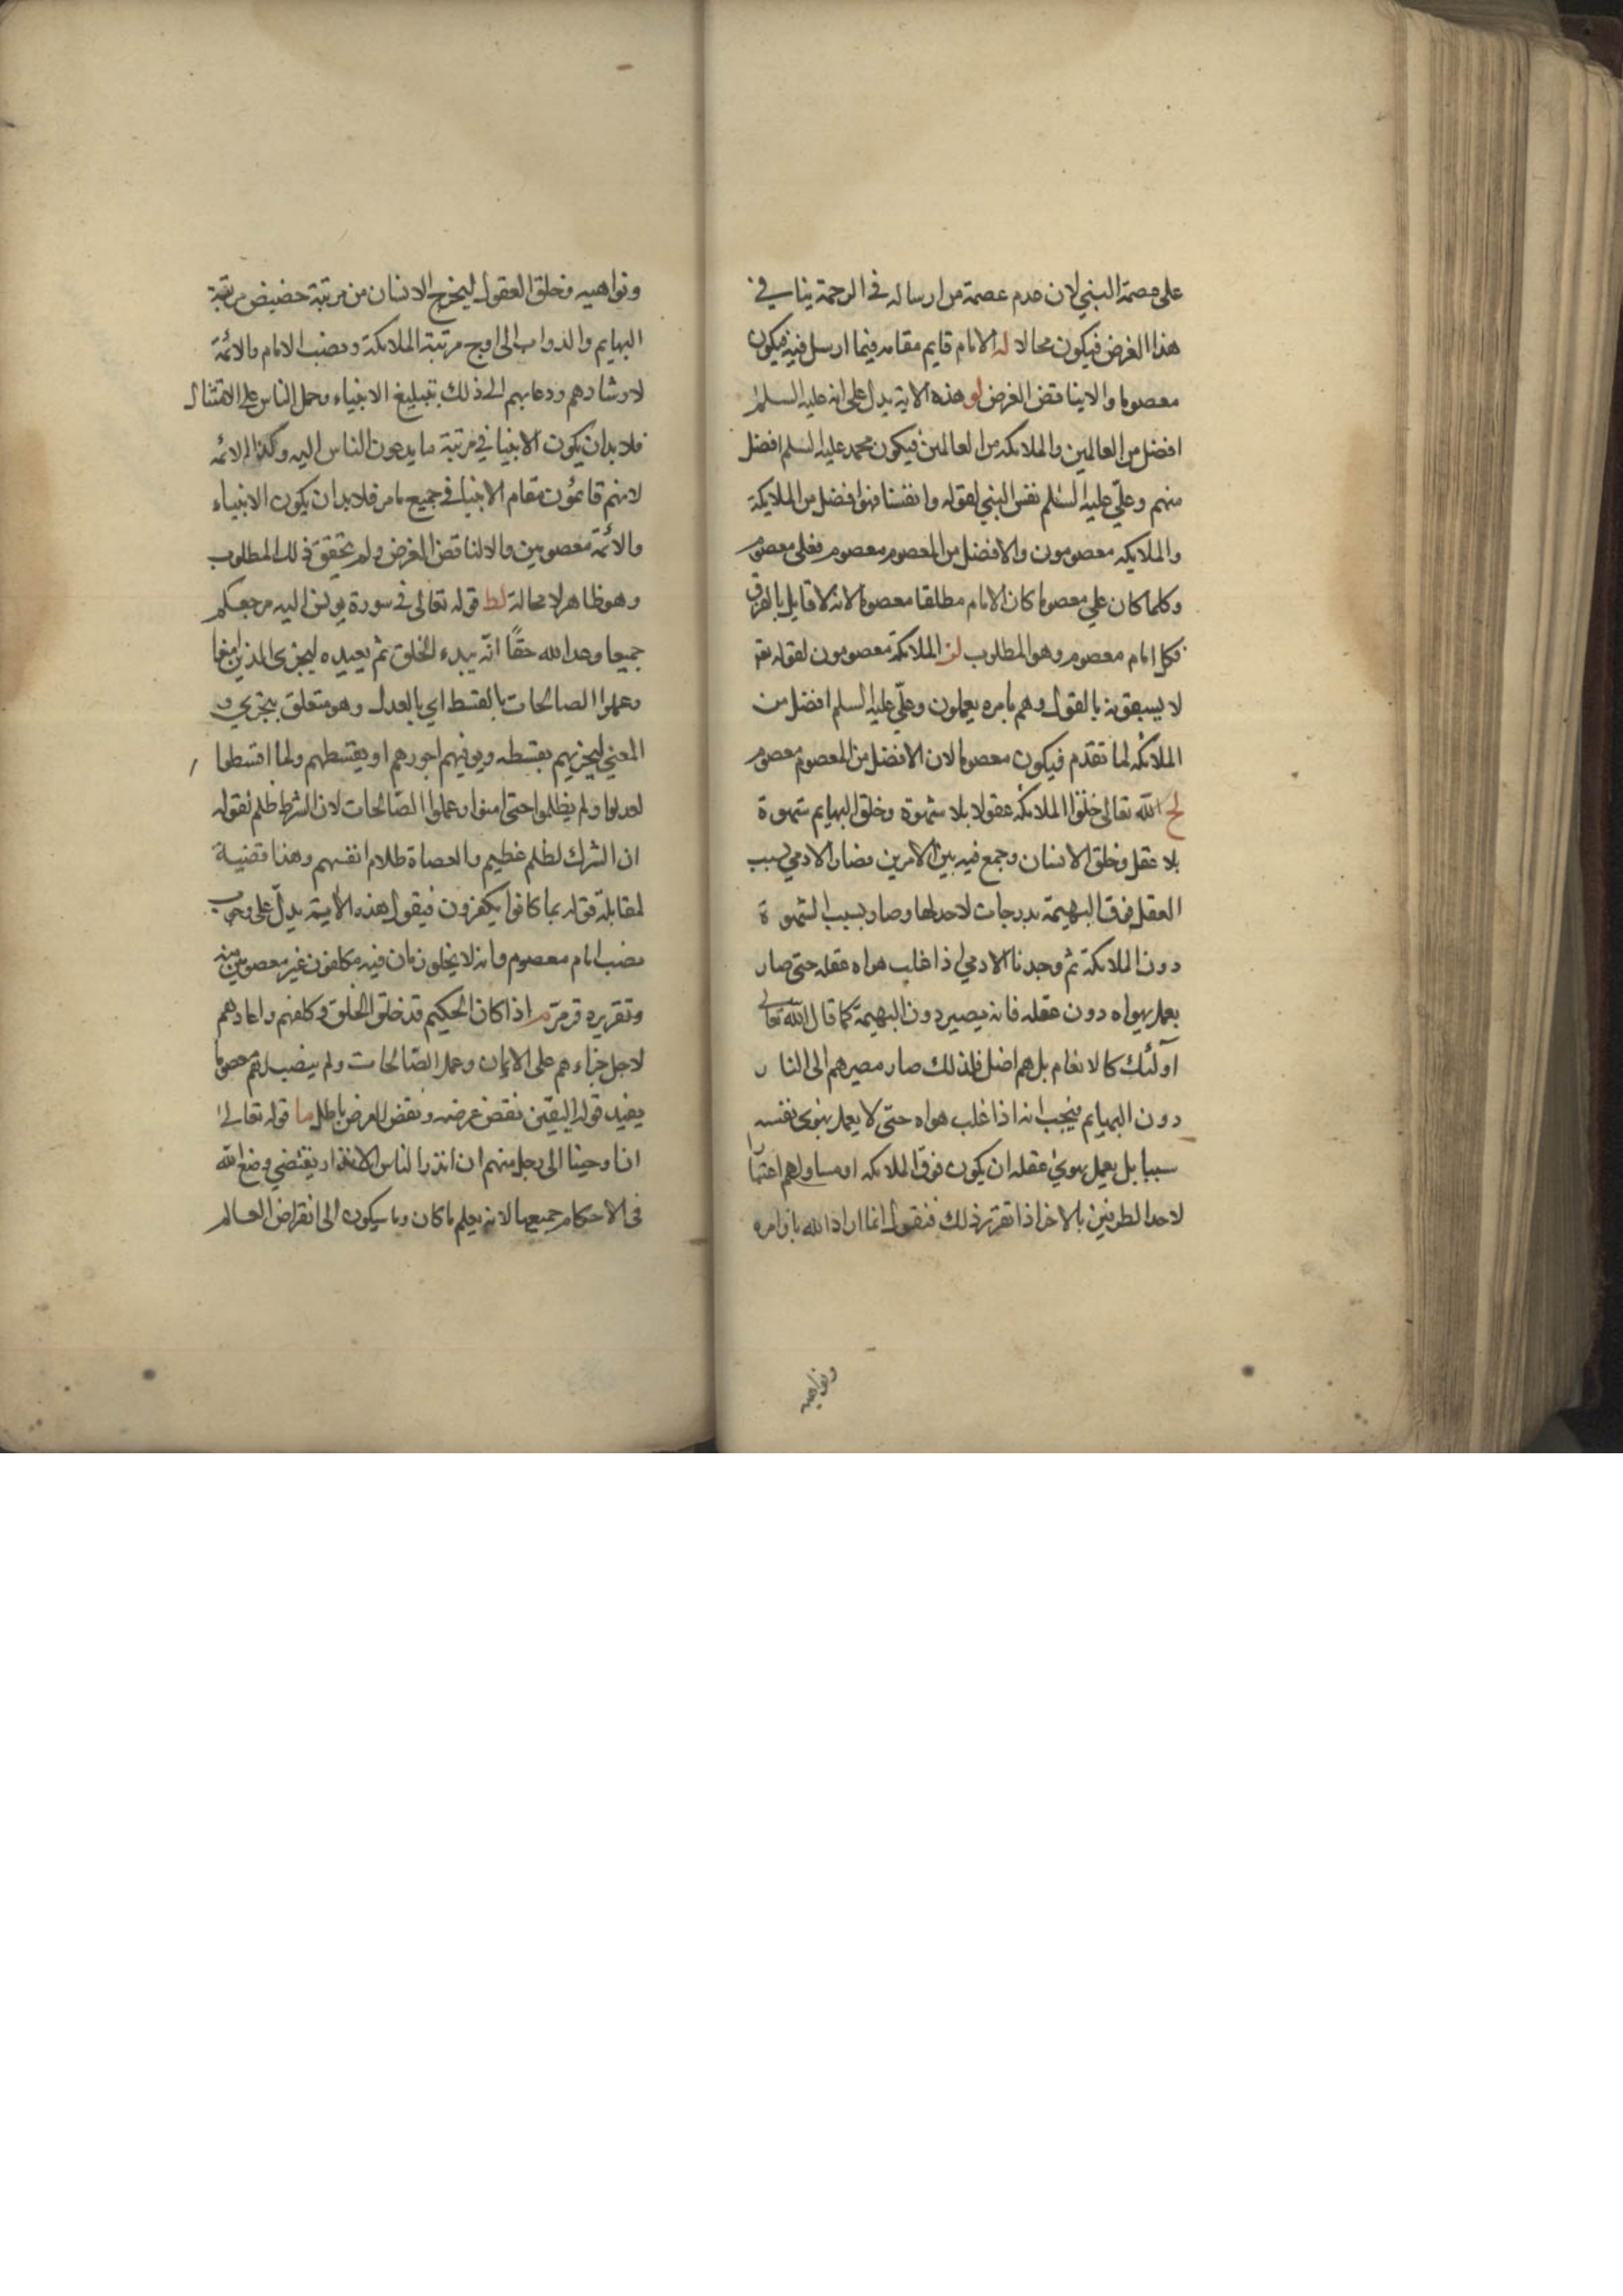 على عصمة النبي لان عدم عصمة من ارساله في الرحمة ينافي في
هذا الغرض فيكون محالا له الامام قايم مقامه فيما ارسل فيه فيكون
معصوما والا يناقض الغرض لو هذه الاية يدل على انه عليه السلم
افضل من العالمين والملائكه من العالمين فيكون محمد عليه السلم افضل
منهم وعليّ عليه السلم نفس النبي لقوله وانفسنا فهو افضل من الملايكة
والملايكه معصومون والافضل من المعصوم معصوم فعلى معصوم
وكلما كان علي معصوما كان الامام مطلقا معصوما لانه لا قايل بالفرق
فكل امام معصوم وهو المطلوب لز الملائكة معصومون لقوله تع
لا يسبقونه بالقول وهم بامره يعملون وعليّ عليه السلم افضل من
الملائكه لما تقدم فيكون معصوما لان الافضل من المعصوم معصوم
لح الله تعالى خلق الملائكه عقولا بلا شهوة وخلق البهايم شهوة
بلا عقل وخلق الانسان وجمع فيه بين الامرين فصار الادمي بسبب
العقل فوق البهيمة بدرجات لاحد لها وصار بسبب الشهوة
دون الملائكة ثم وجدنا الادمي اذا غلب هواه عقله حتى صار
يعمل بهواه دون عقله فانه يصير دون البهيمة كما قال الله تعالى
اولئك كالانعام بل هم اضل فلذلك صار مصيرهم الى النار
دون البهايم فيجب انه اذا غلب هواه حتى لا يعمل بهوى نفسه
سببا بل يعمل بهوي عقله ان يكون فوق الملائكه او مساو لهم اعتبارا
لاحد الطرفين بالاخر اذا تقرر ذلك فنقول انما اراد الله باوامره
ونواهيه
ونواهيه وخلق العقول ليخرج الانسان من مرتبة حضيض مرتبة
البهايم والدواب الى اوج مرتبة الملائكة ونصب الامام والائمة
لارشادهم ودعايهم الى ذلك بتبليغ الانبياء وحمل الناس على الامتثال
فلا بد ان يكون الانبيا في مرتبة ما يدعون الناس اليه وكذا الائمه
لانهم قائمون مقام الانبيا في جميع ما مر فلا بد ان يكون الانبياء
والائمة معصومين والا لناقض الغرض ولم يتحقق ذلك المطلوب
وهو ظاهر لا محالة لط قوله تعالى في سورة يونس اليه مرجعكم
جميعا وعد الله حقًا انّه يبدء الخلق ثم يعيده ليجزى الذين امنوا
وعملوا الصالحات بالقسط اي بالعدل وهو متعلق بيجزي و
المعنى ليجزيهم بقسطه ويوفيهم اجورهم او بقسطهم ولما اقسطوا
لعدلوا ولم يظلموا حتى امنوا وعملوا الصّالحات لان الشرك ظلم لقوله
ان الشرك لظلم عظيم والعصاة ظلام انفسهم وهذا قضية
لمقابلة قوله بما كانوا يكفرون فيقول هذه الآية يدلّ على وجوب
نصب امام معصوم وانه لا يخلو زمان فيه مكلفون غير معصومين منه
وتقريره قد مرّ م اذا كان الحكيم قد خلق الخلق وكلفهم واعادهم
لاجل جزاءهم على الايمان وعمل الصّالحات ولم ينصب لهم معصوما
يفيد قوله اليقين نقض غرضه ونقض الغرض باطل ما قوله تعالى
ان اوحينا الى رجل منهم ان انذر الناس الانذار يقتضي وضع الله
في الاحكام جميعها لانه يعلم ما كان وما سيكون الى انقراض العالم